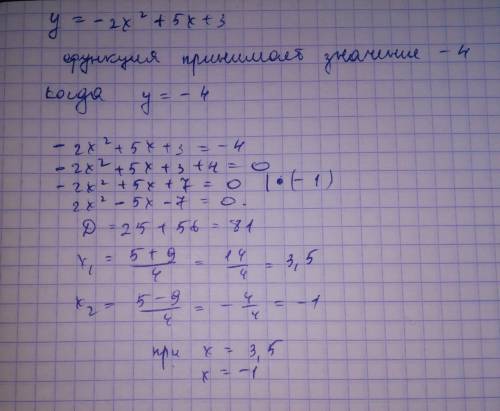 y = -2x² + 5x + 3
функция принимает значение -4
когда y = -4
-2x² + 5x + 3 = -4
-2x² + 5x + 3 + 4 = 0
-2x² + 5x + 7 = 0 | • (-1)
2x² - 5x - 7 = 0.
D = 25 + 56 = 81
x₁ = (5 + 9)/4 = 14/4 = 3,5
x₂ = (5 - 9)/4 = -4/4 = -1
при x = 3,5
x = -1